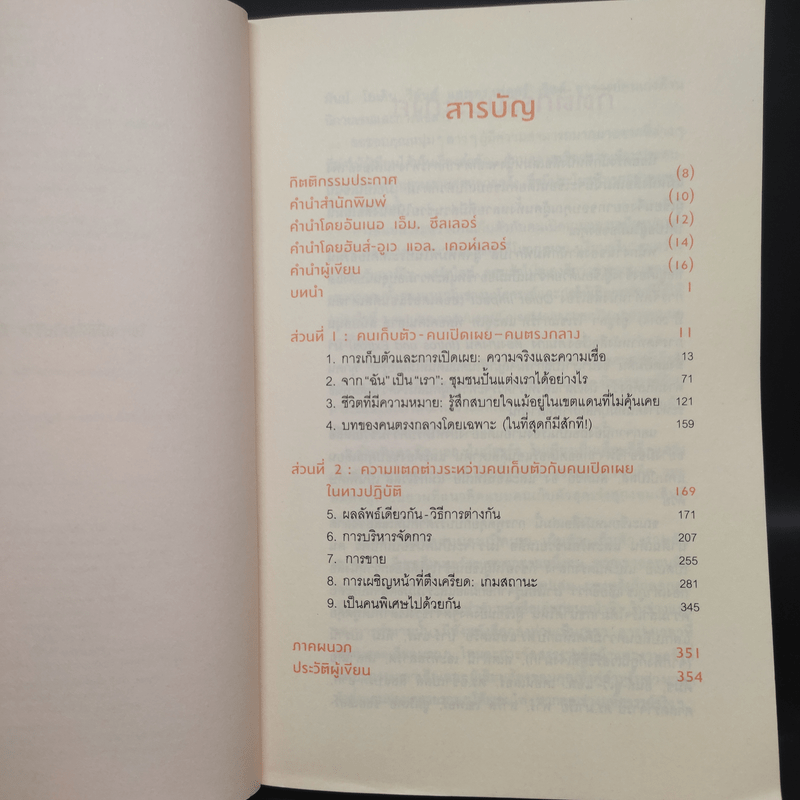 สารบัญ
กิตติกรรมประกาศ (8)
คำนำสำนักพิมพ์ (10)
คำนำโดยอันเนอ เอ็ม. ชึลเลอร์ (12)
คำนำโดยฮันส์-อูเว แอล. เคอห์เลอร์ (14)
คำนำผู้เขียน (16)
บทนำ 1
ส่วนที่ 1 : คนเก็บตัว-คนเปิดเผย-คนตรงกลาง 11
1. การเก็บตัวและการเปิดเผย: ความจริงและความเชื่อ 13
2. จาก "ฉัน" เป็น "เรา": ชุมชนปั้นแต่งเราได้อย่างไร 71
3. ชีวิตที่มีความหมาย: รู้สึกสบายใจแม้อยู่ในเขตแดนที่ไม่คุ้นเคย 121
4. บทของคนตรงกลางโดยเฉพาะ (ในที่สุดก็มีสักที!) 159
ส่วนที่ 2 : ความแตกต่างระหว่างคนเก็บตัวกับคนเปิดเผย
ในทางปฏิบัติ 169
5. ผลลัพธ์เดียวกัน-วิธีการต่างกัน 171
6. การบริหารจัดการ 207
7. การขาย 255
8. การเผชิญหน้าที่ตึงเครียด: เกมสถานะ 281
9. เป็นคนพิเศษไปด้วยกัน 345
ภาคผนวก 351
ประวัติผู้เขียน 354